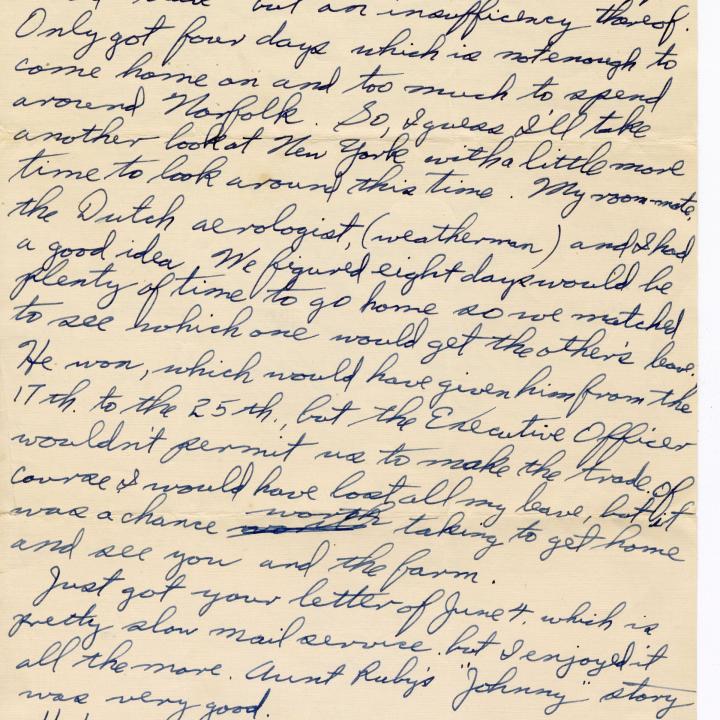 but an insufficiency thereof.
Only got four days which is not enough to
come home on and too much to spend
around Norfolk. So, I guess I'll take
another look at New York with a little more
time to look around this time. My room-mate,
the Dutch aerologist, (weatherman) and I had
a good idea. We figured eight days would be
plenty of time to go home so we matched
to see which one would get the other's leave.
He won, which would have given him from the
17th. to the 25th., but the Executive Officer
wouldn't permit us to make the trade. Of
course I would have lost all my leave, but it
was a chance worth taking to get home
and see you and the farm.
Just got your letter of June 4. which is
pretty slow mail service. but I enjoyed it
all the more. Aunt Ruby's "Johnny" story
was very good.